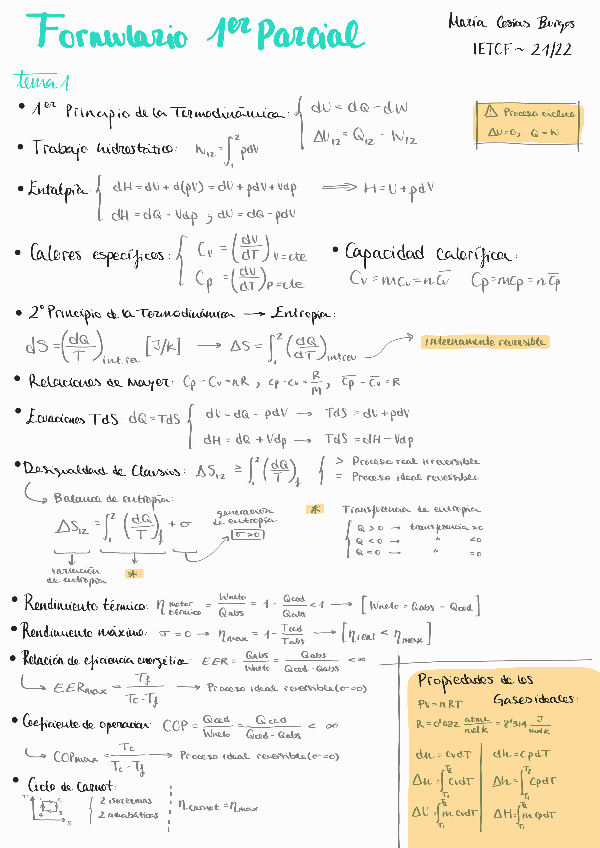 Formulario 1er Parcial
María Cosías Burgos
IETCF ~ 21/22
tema 1
• 1er Principio de la Termodinámica: { dU = dQ - dW
ΔU12 = Q12 - W12
⚠ Proceso cíclico
ΔU=0, Q=W
• Trabajo hidrostático: W12 = ∫₁² pdV
• Entalpía { dH = dU + d(pV) = dU + pdV + Vdp ⟹ H = U + pdV
dH = dQ - Vdp ; dU = dQ - pdV
• Calores específicos: { Cv = (dU/dT) V=cte
Cp = (dU/dT) P=cte
• Capacidad calorífica:
Cv = mcv = n c̅v Cp = mcp = n c̅p
• 2º Principio de la Termodinámica → Entropía:
dS = (dQ/T) int.rev [J/K] → ΔS = ∫₁² (dQ/dT) intrev → internamente reversible
• Relaciones de mayer: Cp - Cv = nR , cp - cv = R/M , c̅p - c̅v = R
• Ecuaciones TdS dQ = TdS { dU = dQ - pdV → TdS = dU + pdV
dH = dQ + Vdp → TdS = dH - Vdp
• Desigualdad de Clausius: ΔS12 ≥ ∫₁² (dQ/T)f { > Proceso real irreversible
= Proceso ideal reversible
Balance de entropía:
ΔS12 = ∫₁² (dQ/T)f + σ
generación de entropía
σ>0
variación de entropía
*
* Transferencia de entropía
{ Q > 0 → transferencia >0
Q < 0 → " <0
Q = 0 → " =0
• Rendimiento térmico: η motor térmico = Wneto/Qabs = 1 - Qced/Qabs < 1 → [Wneto = Qabs - Qced]
• Rendimiento máximo: σ = 0 → ηmax = 1 - Tced/Tabs → [ηreal < ηmax]
• Relación de eficiencia energética: EER = Qabs/Wneto = Qabs/(Qced - Qabs) < ∞
EERmax = Tf/(Tc - Tf) → Proceso ideal reversible (σ=0)
• Coeficiente de operación: COP = Qced/Wneto = Qced/(Qced - Qabs) < ∞
COPmax = Tc/(Tc - Tf) → Proceso ideal reversible (σ=0)
• Ciclo de Carnot:
T
S
{ 2 isotermas
2 adiabáticas
ηcarnot = ηmax
Propiedades de los
Gases ideales:
PV = nRT
R = 0'082 atm·L/mol·K = 8'314 J/mol·K
du = cvdT
dh = cpdT
Δu = ∫T1T2 cvdT
Δh = ∫T1T2 cpdT
ΔU = ∫T1T2 m cvdT
ΔH = ∫T1T2 m cpdT